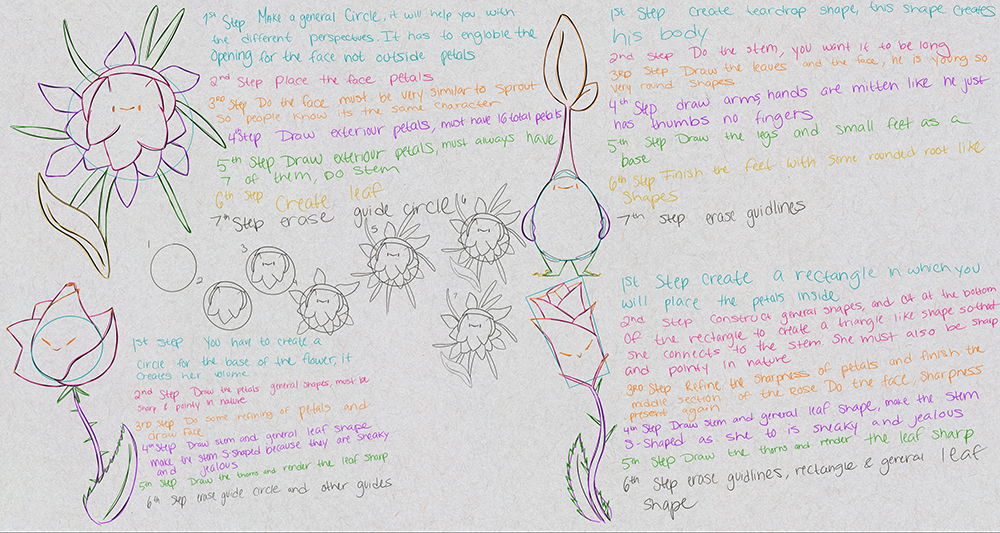 1st Step Make a general Circle, it will help you with
the different perspectives. It has to engloble the
opening for the face not outside petals
2nd Step Place the face petals
3rd Step Do the face must be very similar to sprout
so people know its the same character
4th Step Draw exterior petals, must have 16 total petals
5th Step Draw exteriour petals, must always have
7 of them, Do stem
6th Step Create leaf
7th Step erase guide circle
1
2
3
4
5
6
7
1st Step Create teardrop shape, this shape creates
his body
2nd Step Do the stem, you want it to be long
3rd Step Draw the leaves and the face, he is young so
very round shapes
4th Step draw arms, hands are mitten like he just
has thumbs no fingers
5th Step Draw the legs and small feet as a
base
6th Step Finish the feet with some rounded root like
shapes
7th step erase guidlines
1st Step You have to create a
Circle for the base of the flower, it
creates her volume
2nd Step Draw the petals general shapes, must be
sharp & pointy in nature
3rd Step Do some refining of petals and
draw face
4th Step Draw stem and general leaf shape
make the stem S-shaped because they are sneaky
and jealous
5th Step Draw the thorns and render the leaf sharp
6th Step erase guide circle and other guides
1st Step Create a rectangle in which you
will place the petals inside
2nd Step Construct general shapes, and cut at the bottom
of the rectangle to create a triangle like shape so that
she connects to the stem. She must also be sharp
and pointy in nature
3rd Step Refine the sharpness of petals and finish the
middle section of the Rose Do the face, sharpness
present again
4th Step Draw stem and general leaf shape, make the stem
S-shaped as she to is sneaky and jealous
5th Step Draw the thorns and render the leaf sharp
6th Step erase guidlines, rectangle & general leaf
shape